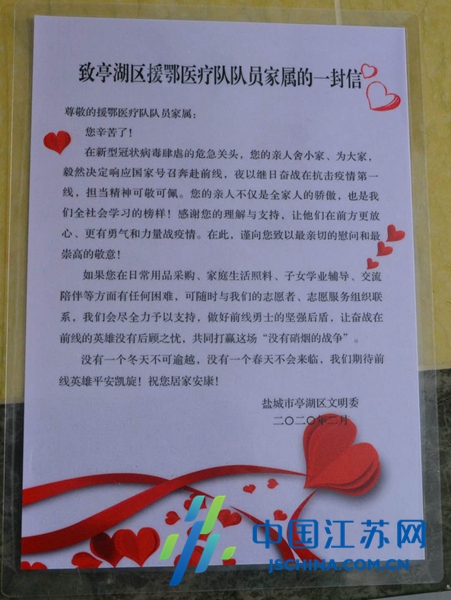 致亭湖区援鄂医疗队队员家属的一封信
尊敬的援鄂医疗队队员家属：
您辛苦了！
在新型冠状病毒肆虐的危急关头，您的亲人舍小家、为大家，
毅然决定响应国家号召奔赴前线，夜以继日奋战在抗击疫情第一
线，担当精神可敬可佩。您的亲人不仅是全家人的骄傲，也是我
们全社会学习的榜样！感谢您的理解与支持，让他们在前方更放
心、更有勇气和力量战疫情。在此，谨向您致以最亲切的慰问和最
崇高的敬意！
如果您在日常用品采购、家庭生活照料、子女学业辅导、交流
陪伴等方面有任何困难，可随时与我们的志愿者、志愿服务组织联
系，我们会尽全力予以支持，做好前线勇士的坚强后盾，让奋战在
前线的英雄没有后顾之忧，共同打赢这场“没有硝烟的战争”。
没有一个冬天不可逾越，没有一个春天不会来临，我们期待前
线英雄平安凯旋！祝您居家安康！
盐城市亭湖区文明委
二〇二〇年二月
中国江苏网
JSCHINA.COM.CN